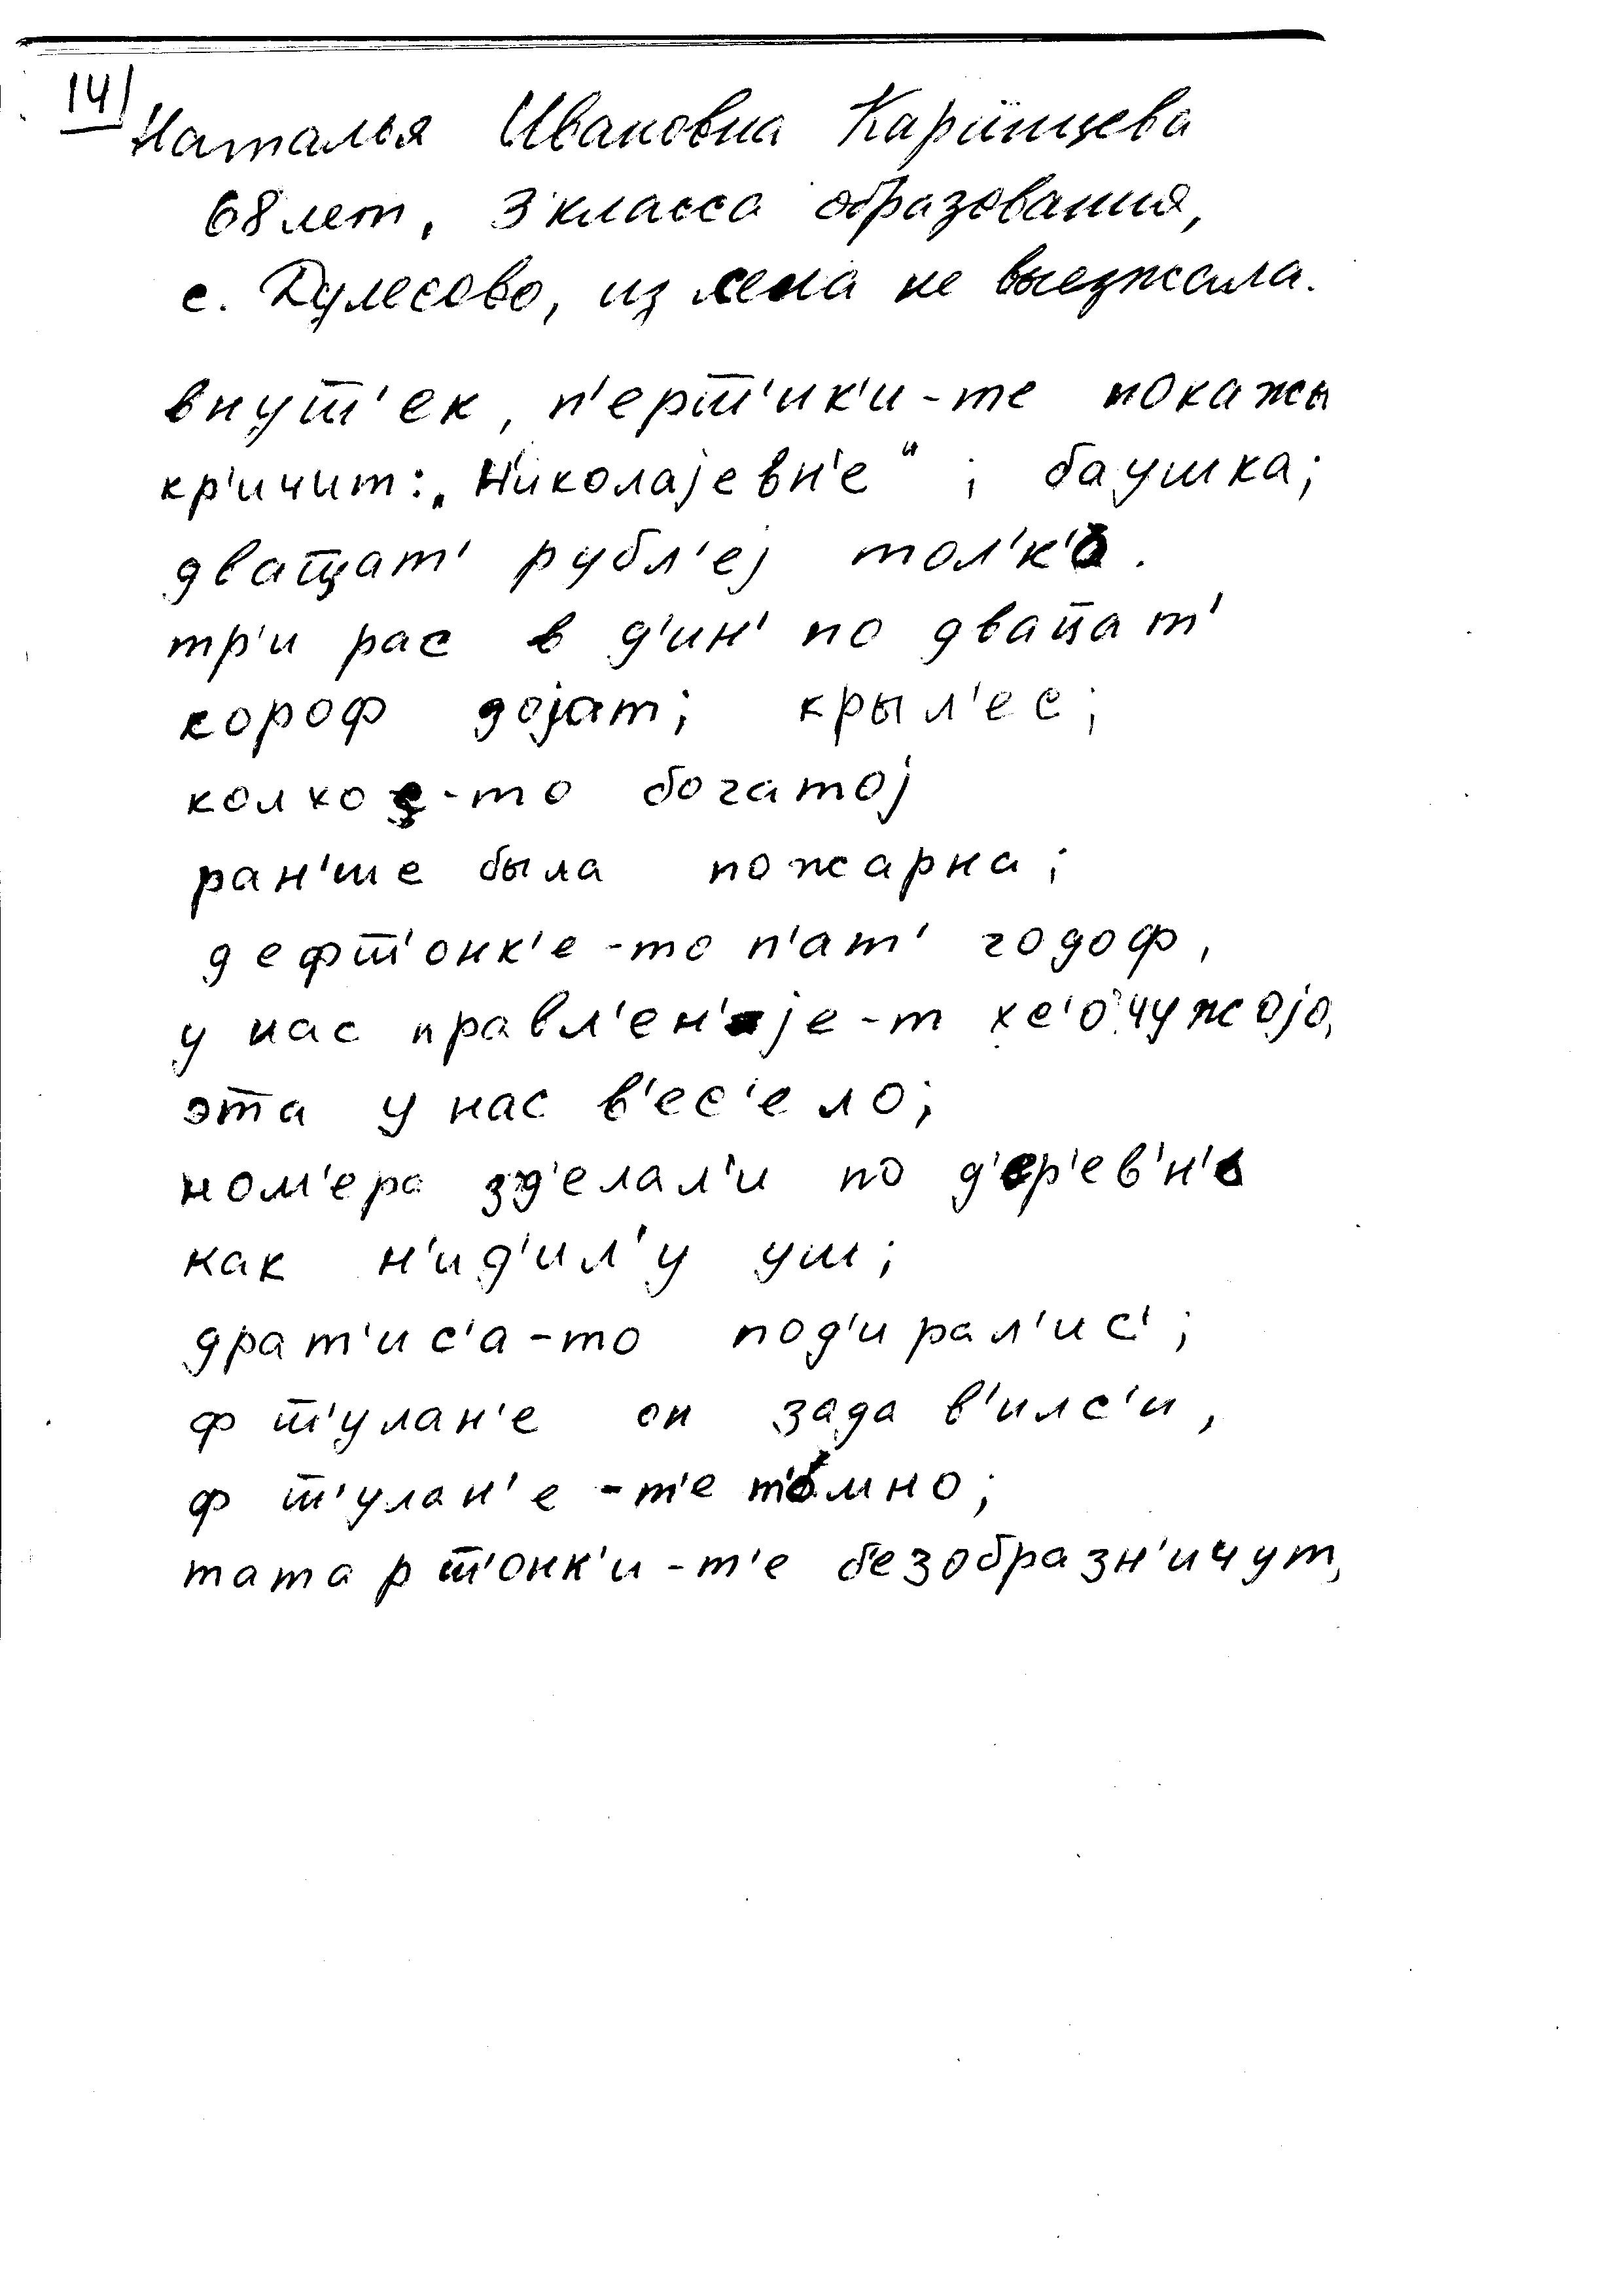 14)
Наталья Ивановна Каринцева
68 лет, 3 класса образования,
с. Дулесово, из села не выезжала.
внут̅'ек, п'ерт̅'ик'и-те покажы
кр'ичит: „Н'иколајевн'е“; баушка;
двац̅ат' рубл'еј тол'к'о.
тр'и рас в д'ин' по двац̅ат'
короф дојат; крыл'ес;
колхос-то богатој
ран'ше была пожарна;
дефт̅'онк'е-то п'ат' годоф,
у нас правл'ен'је-т хе'о чужојо,
эт̅а у нас в'ес'ело;
ном'ера зд'елал'и по д'ер'ев'н'е
как н'ид'ил'у уш;
драт'ис'а-то под'ирал'ис';
ф т̅'улан'е он задав'илс'и,
ф т̅'улан'е-т'е т'омно;
татарт̅'онк'и-т'е безобразн'ичут,